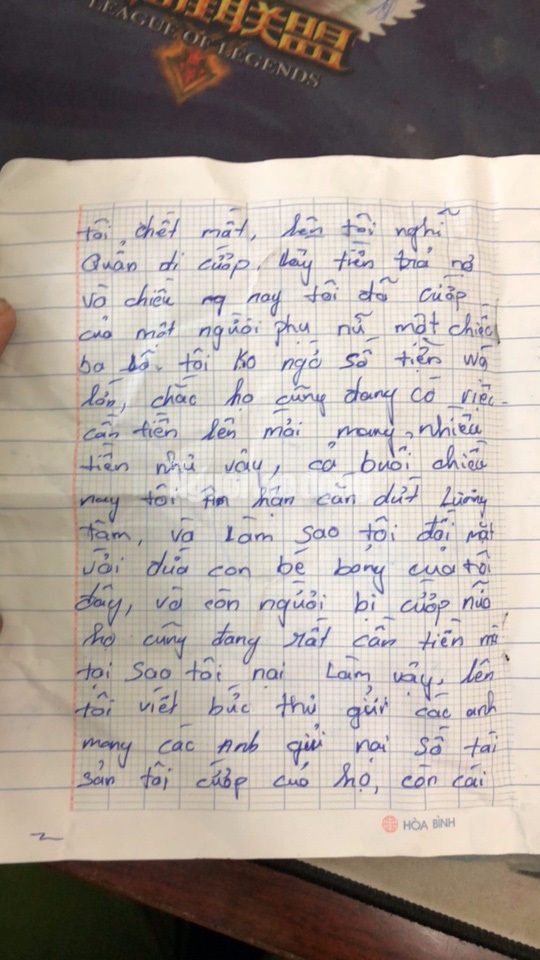 雄联盟
LEAGUE OF LEGENDS
tôi chết mất, lên tôi nghĩ
Quẩn di cướp, lấy tiền trả nợ
và chiều ng nay tôi đã cướp
của một người phụ nữ một chiếc
ba lô. tôi ko ngờ số tiền wá
lớn, chắc họ cũng đang có việc
cần tiền lên mới mang nhiều
tiền như vậy, cả buổi chiều
nay tôi ân hận cắn dứt Lương
tâm, và Làm sao tôi đối mặt
với đứa con bé bỏng của tôi
đây, và còn người bị cướp nữa
họ cũng đang rất cần tiền mà
tại sao tôi nại Làm vậy, lên
tôi viết bức thư gửi các anh
mong các Anh gửi nại số tài
sản tôi cướp của họ, còn cái
HÒA BÌNH
2